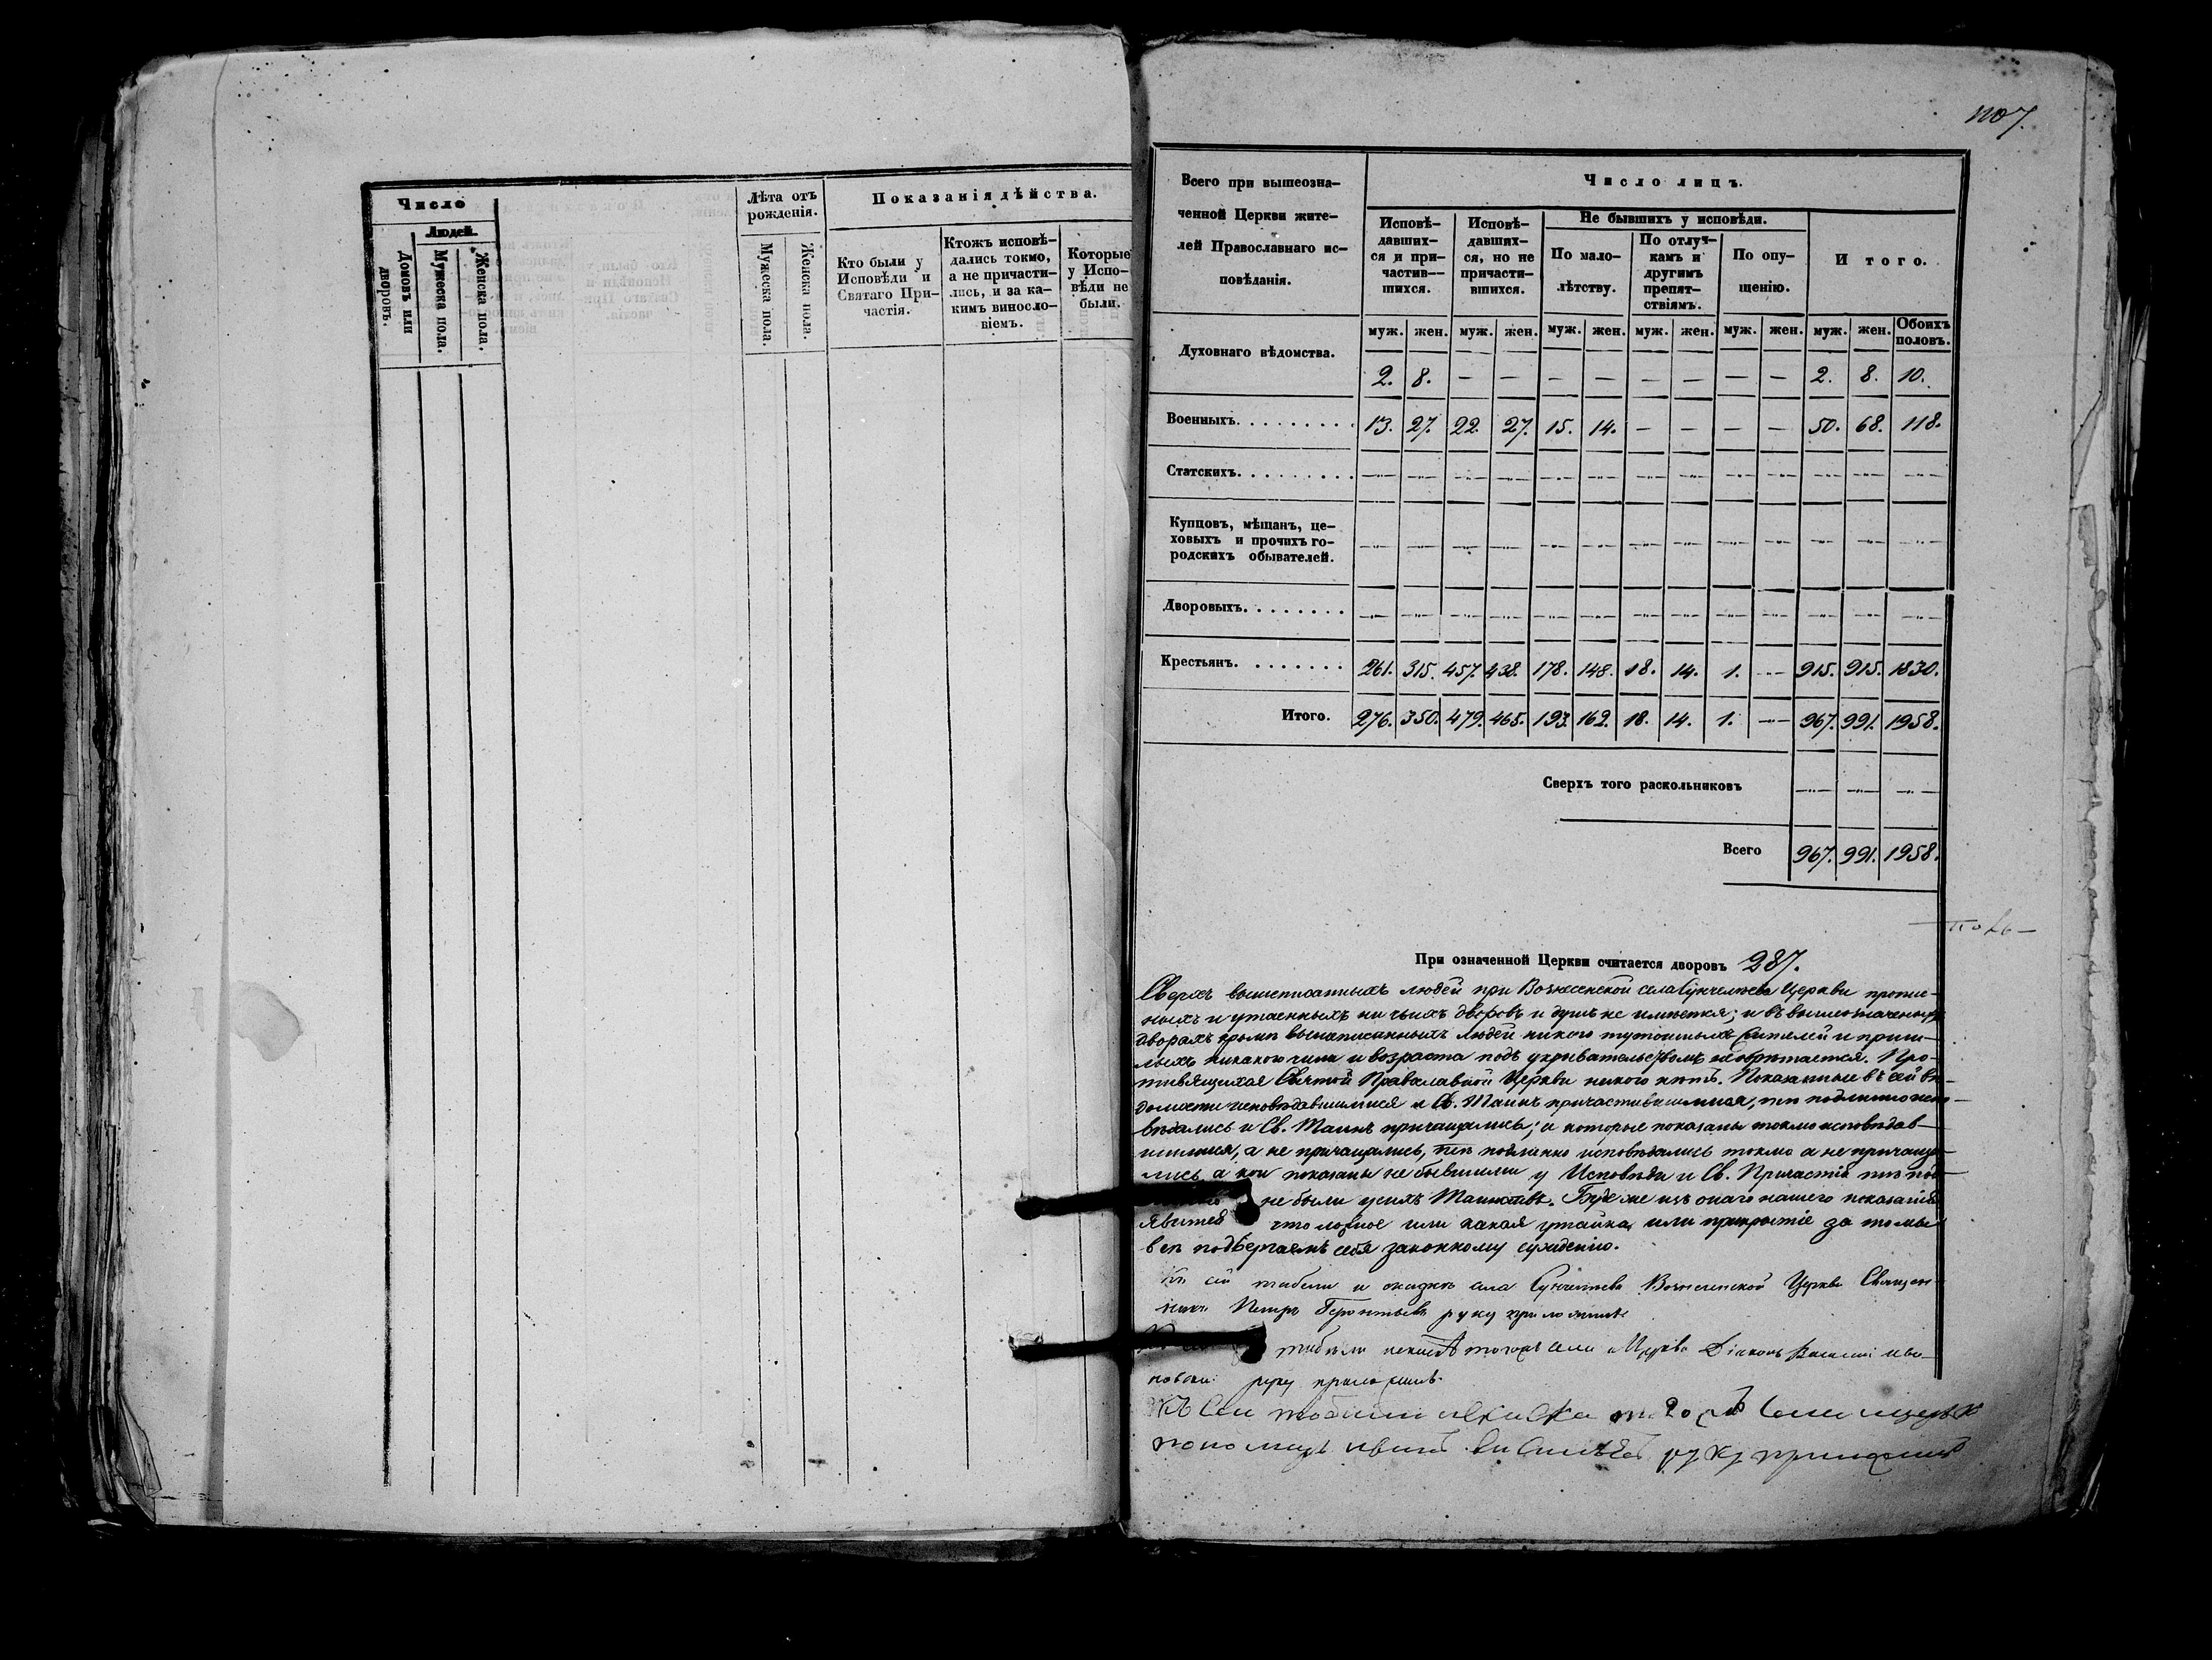 Число
Людей.
Домовъ или дворовъ.
Мужеска пола.
Женска пола.
Лѣта отъ рожденія.
Мужеска пола.
Женска пола.
Показанія дѣйства.
Кто были у Исповѣди и Святаго Причастія.
Ктожъ исповѣ-
дались токмо,
а не причасти-
лись, и за ка-
кимъ винosло-
віемъ.
Которые
у Испо-
вѣди не
были.
Всего при вышеозна-
ченной Церкви жите-
лей Православнаго ис-
повѣданія.
Число лицъ.
Исповѣ-
давших-
ся и при-
частив-
шихся.
Исповѣ-
давших-
ся, но не
причасти-
вшихся.
Не бывшихъ у исповѣди.
По мало-
лѣтству.
По отлуч-
камъ и
другимъ
препят-
ствіямъ.
По опу-
щенію.
Итого.
муж. жен. муж. жен. муж. жен. муж. жен. муж. жен. муж. жен. Обоихъ половъ.
Духовнаго вѣдомства. 2. 8. — — — — — — — — 2. 8. 10.
Военныхъ. 13. 27. 22. 27. 15. 14. — — — — 50. 68. 118.
Статскихъ. — — — — — — — — — — — — —
Купцовъ, мѣщанъ, це-
ховыхъ и прочихъ го-
родскихъ обывателей. — — — — — — — — — — — — —
Дворовыхъ. — — — — — — — — — — — — —
Крестьянъ. 261. 315. 457. 438. 178. 148. 18. 14. 1. — 915. 915. 1830.
Итого. 276. 350. 479. 465. 193. 162. 18. 14. 1. — 967. 991. 1958.
Сверхъ того раскольниковъ — — —
Всего 967. 991. 1958.
При означенной Церкви считается дворовъ 287.
Сверхъ вышеписанныхъ людей при Вознесенской села Церкви пропис-
ныхъ и утаенныхъ ни чьихъ дворовъ и душъ не имѣется; и въ вышеозначенныхъ
дворахъ кромѣ вышеписанныхъ людей никого тутошныхъ жителей и приш-
лыхъ никакого чина и возраста подъ укрывательствомъ не обрѣтается. Про-
тивящихся Святой Православной Церкви никого нѣтъ. Показанные въ сей вѣ-
домости исповѣдавшимися и Св. Таинъ причастившимися, тѣ подлинно испо-
вѣдались и Св. Таинъ причащались; и которые показаны токмо исповѣдав-
шимися, а не причащались, тѣ подлинно исповѣдались токмо а не причаща-
лись, а кои показаны не бывшими у Исповѣди и Св. Причастія тѣ под-
не были у сихъ Таинствъ. Буде же изъ онаго нашего показанія
явится что ложное или какая утайка, или прикрытіе за то мы
всѣ подвергаемъ себя законному сужденію.
Къ сей табели и села Вознесенской Церкви Священ-
никъ Петръ руку приложилъ
табели тогожъ села Церкви Діаконъ Василій
руку приложилъ.
Къ сей тогожъ села
пономарь руку приложилъ